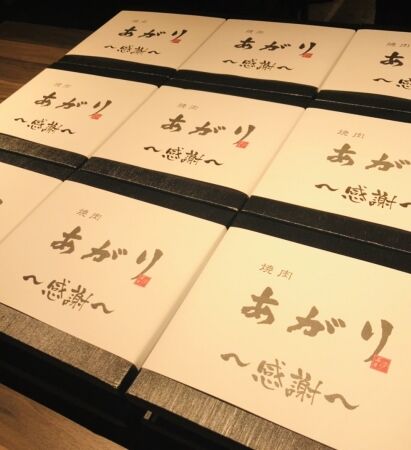 焼肉
あがり
～感謝～
焼肉
あがり
～感謝～
焼肉
あが
～感謝
焼肉
あがり
～感謝～
焼肉
あがり
～感謝～
焼肉
あがり
～感謝～
焼肉
あがり
～感謝～
焼肉
あがり
～感謝～